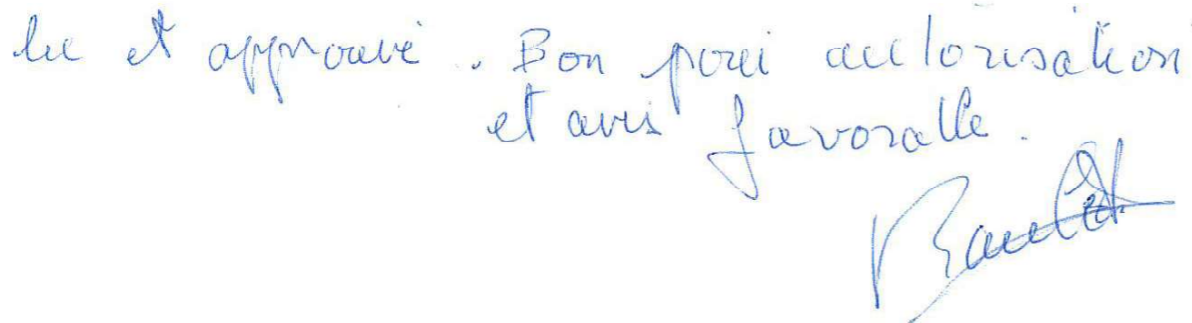 lu et approuvé. Bon pour autorisation
et avis favorable.